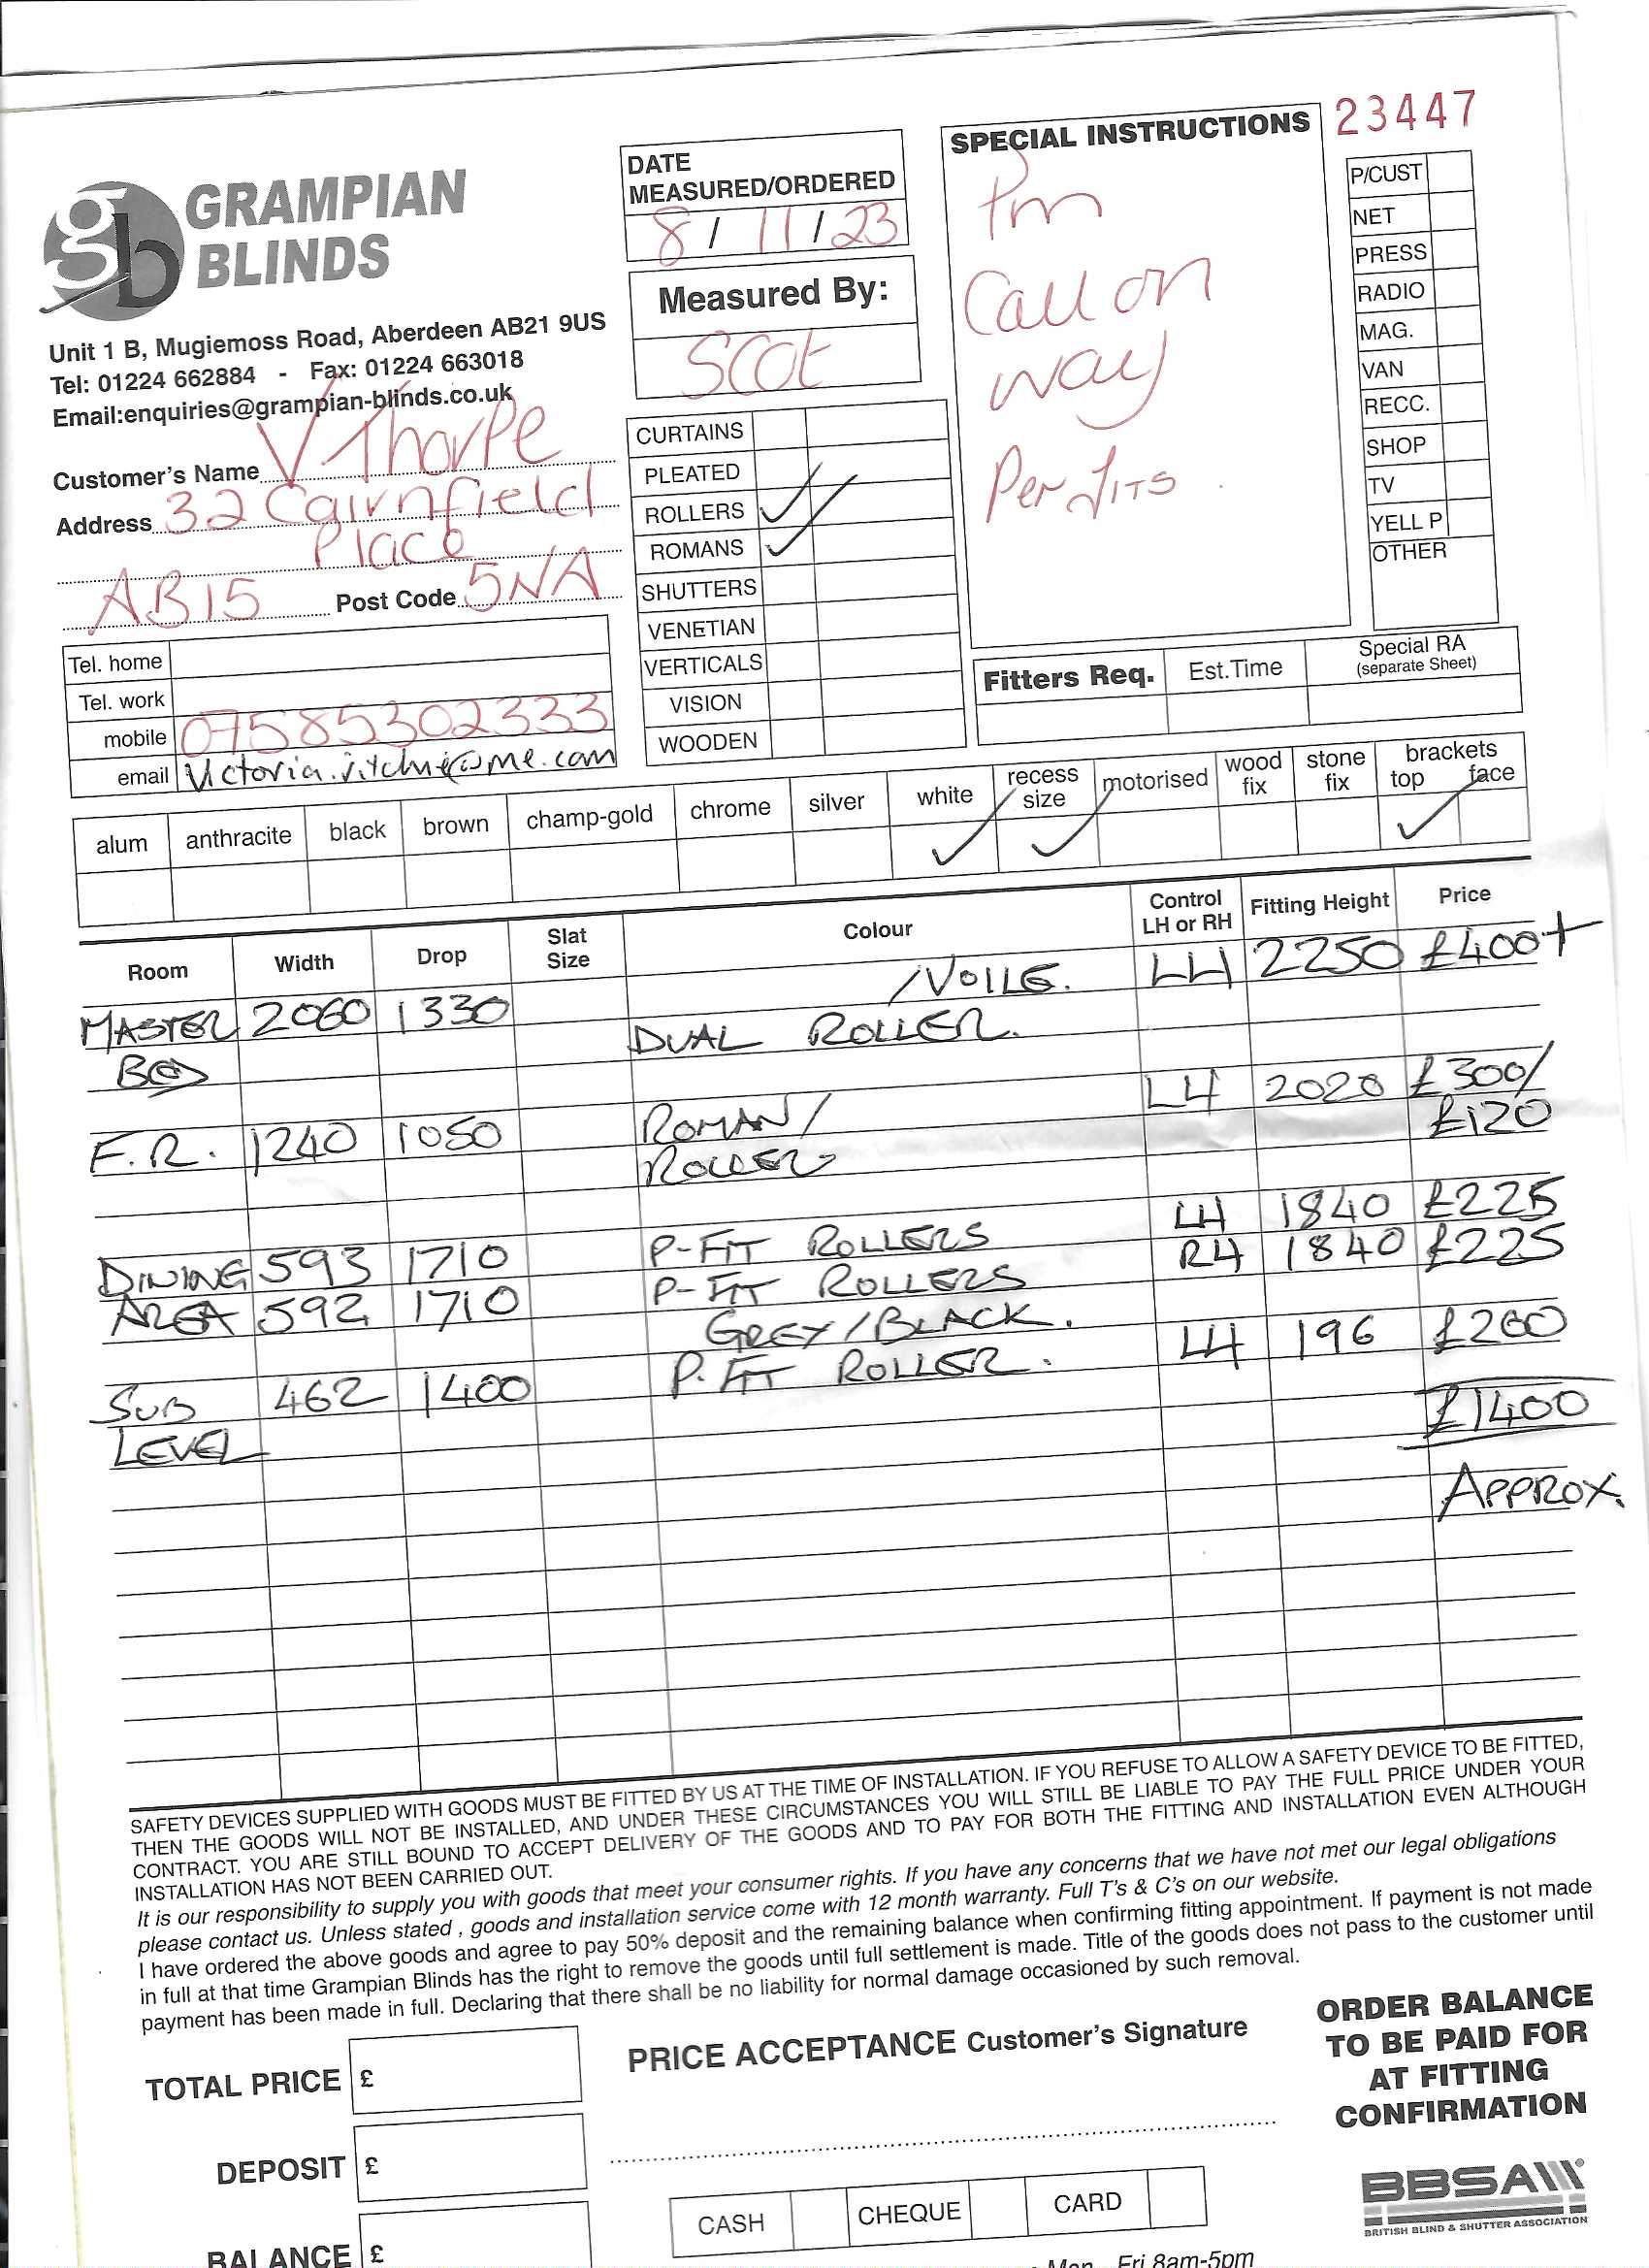 23447
GRAMPIAN
BLINDS
Unit 1 B, Mugiemoss Road, Aberdeen AB21 9US
Tel: 01224 662884 - Fax: 01224 663018
Email:enquiries@grampian-blinds.co.uk
Customer's Name V Thorpe
Address 32 Cairnfield
Place
AB15 Post Code 5NA
Tel. home
Tel. work
mobile 07585302333
email Victoria.ritchie@me.com
DATE
MEASURED/ORDERED
8 / 11 / 23
Measured By:
Scot
CURTAINS
PLEATED
ROLLERS ✓
ROMANS ✓
SHUTTERS
VENETIAN
VERTICALS
VISION
WOODEN
SPECIAL INSTRUCTIONS
Pm
Call on
way
Per
P/CUST
NET
PRESS
RADIO
MAG.
VAN
RECC.
SHOP
TV
YELL P
OTHER
Fitters Req. Est.Time Special RA
(separate Sheet)
alum anthracite black brown champ-gold chrome silver white recess size motorised wood fix stone fix brackets top face
Room Width Drop Slat Size Colour Control LH or RH Fitting Height Price
MASTER 2060 1330 /VOILE. LH 2250 £400+
BED DUAL ROLLER.
F.R. 1240 1050 ROMAN/ LH 2020 £300/
ROLLER £120
DINING 593 1710 P-FIT ROLLERS LH 1840 £225
AREA 592 1710 P-FIT ROLLERS RH 1840 £225
GREY/BLACK.
SUB 462 1400 P.FIT ROLLER. LH 196 £200
LEVEL £1400
APPROX.
SAFETY DEVICES SUPPLIED WITH GOODS MUST BE FITTED BY US AT THE TIME OF INSTALLATION. IF YOU REFUSE TO ALLOW A SAFETY DEVICE TO BE FITTED,
THEN THE GOODS WILL NOT BE INSTALLED, AND UNDER THESE CIRCUMSTANCES YOU WILL STILL BE LIABLE TO PAY THE FULL PRICE UNDER YOUR
CONTRACT. YOU ARE STILL BOUND TO ACCEPT DELIVERY OF THE GOODS AND TO PAY FOR BOTH THE FITTING AND INSTALLATION EVEN ALTHOUGH
INSTALLATION HAS NOT BEEN CARRIED OUT.
It is our responsibility to supply you with goods that meet your consumer rights. If you have any concerns that we have not met our legal obligations
please contact us. Unless stated , goods and installation service come with 12 month warranty. Full T's & C's on our website.
I have ordered the above goods and agree to pay 50% deposit and the remaining balance when confirming fitting appointment. If payment is not made
in full at that time Grampian Blinds has the right to remove the goods until full settlement is made. Title of the goods does not pass to the customer until
payment has been made in full. Declaring that there shall be no liability for normal damage occasioned by such removal.
TOTAL PRICE £
DEPOSIT £
BALANCE £
PRICE ACCEPTANCE Customer's Signature
CASH CHEQUE CARD
ORDER BALANCE
TO BE PAID FOR
AT FITTING
CONFIRMATION
BBSA
BRITISH BLIND & SHUTTER ASSOCIATION
Mon - Fri 8am-5pm